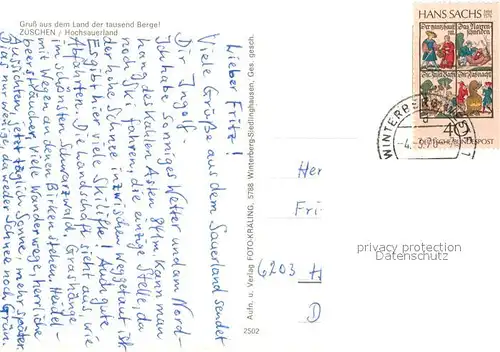 Gruß aus dem Land der tausend Berge!
ZÜSCHEN / Hochsauerland
Lieber Fritz!
Viele Grüße aus dem Sauerland sendet
Dir Ingolf.
Ich habe sonniges Wetter und am Nord-
hang des Kahlen Asten 841m kann man
noch Ski fahren, die einzige Stelle, da
der hohe Schnee inzwischen weggetaut ist.
Es gibt hier viele Skilifte! Auch gute
Abfahrten. Die Landschaft sieht aus, wie
im schönsten Schwarzwald, Grashänge
mit Wegen an denen Birken stehen. Heidel-
beersträucher, viele Wanderwege, herrliche
Aussichten, jetzt täglich Sonne, mehr später.
Dies nur wenige, da weder Schnee noch Grün.
Aufn. u. Verlag FOTO-KRALING, 5788 Winterberg-Siedlinghausen. Ges. gesch.
2502
HANS SACHS
DEUTSCHE BUNDESPOST
40
WINTERBERG
Her
Fri
6203 H
D
privacy protection
watermark